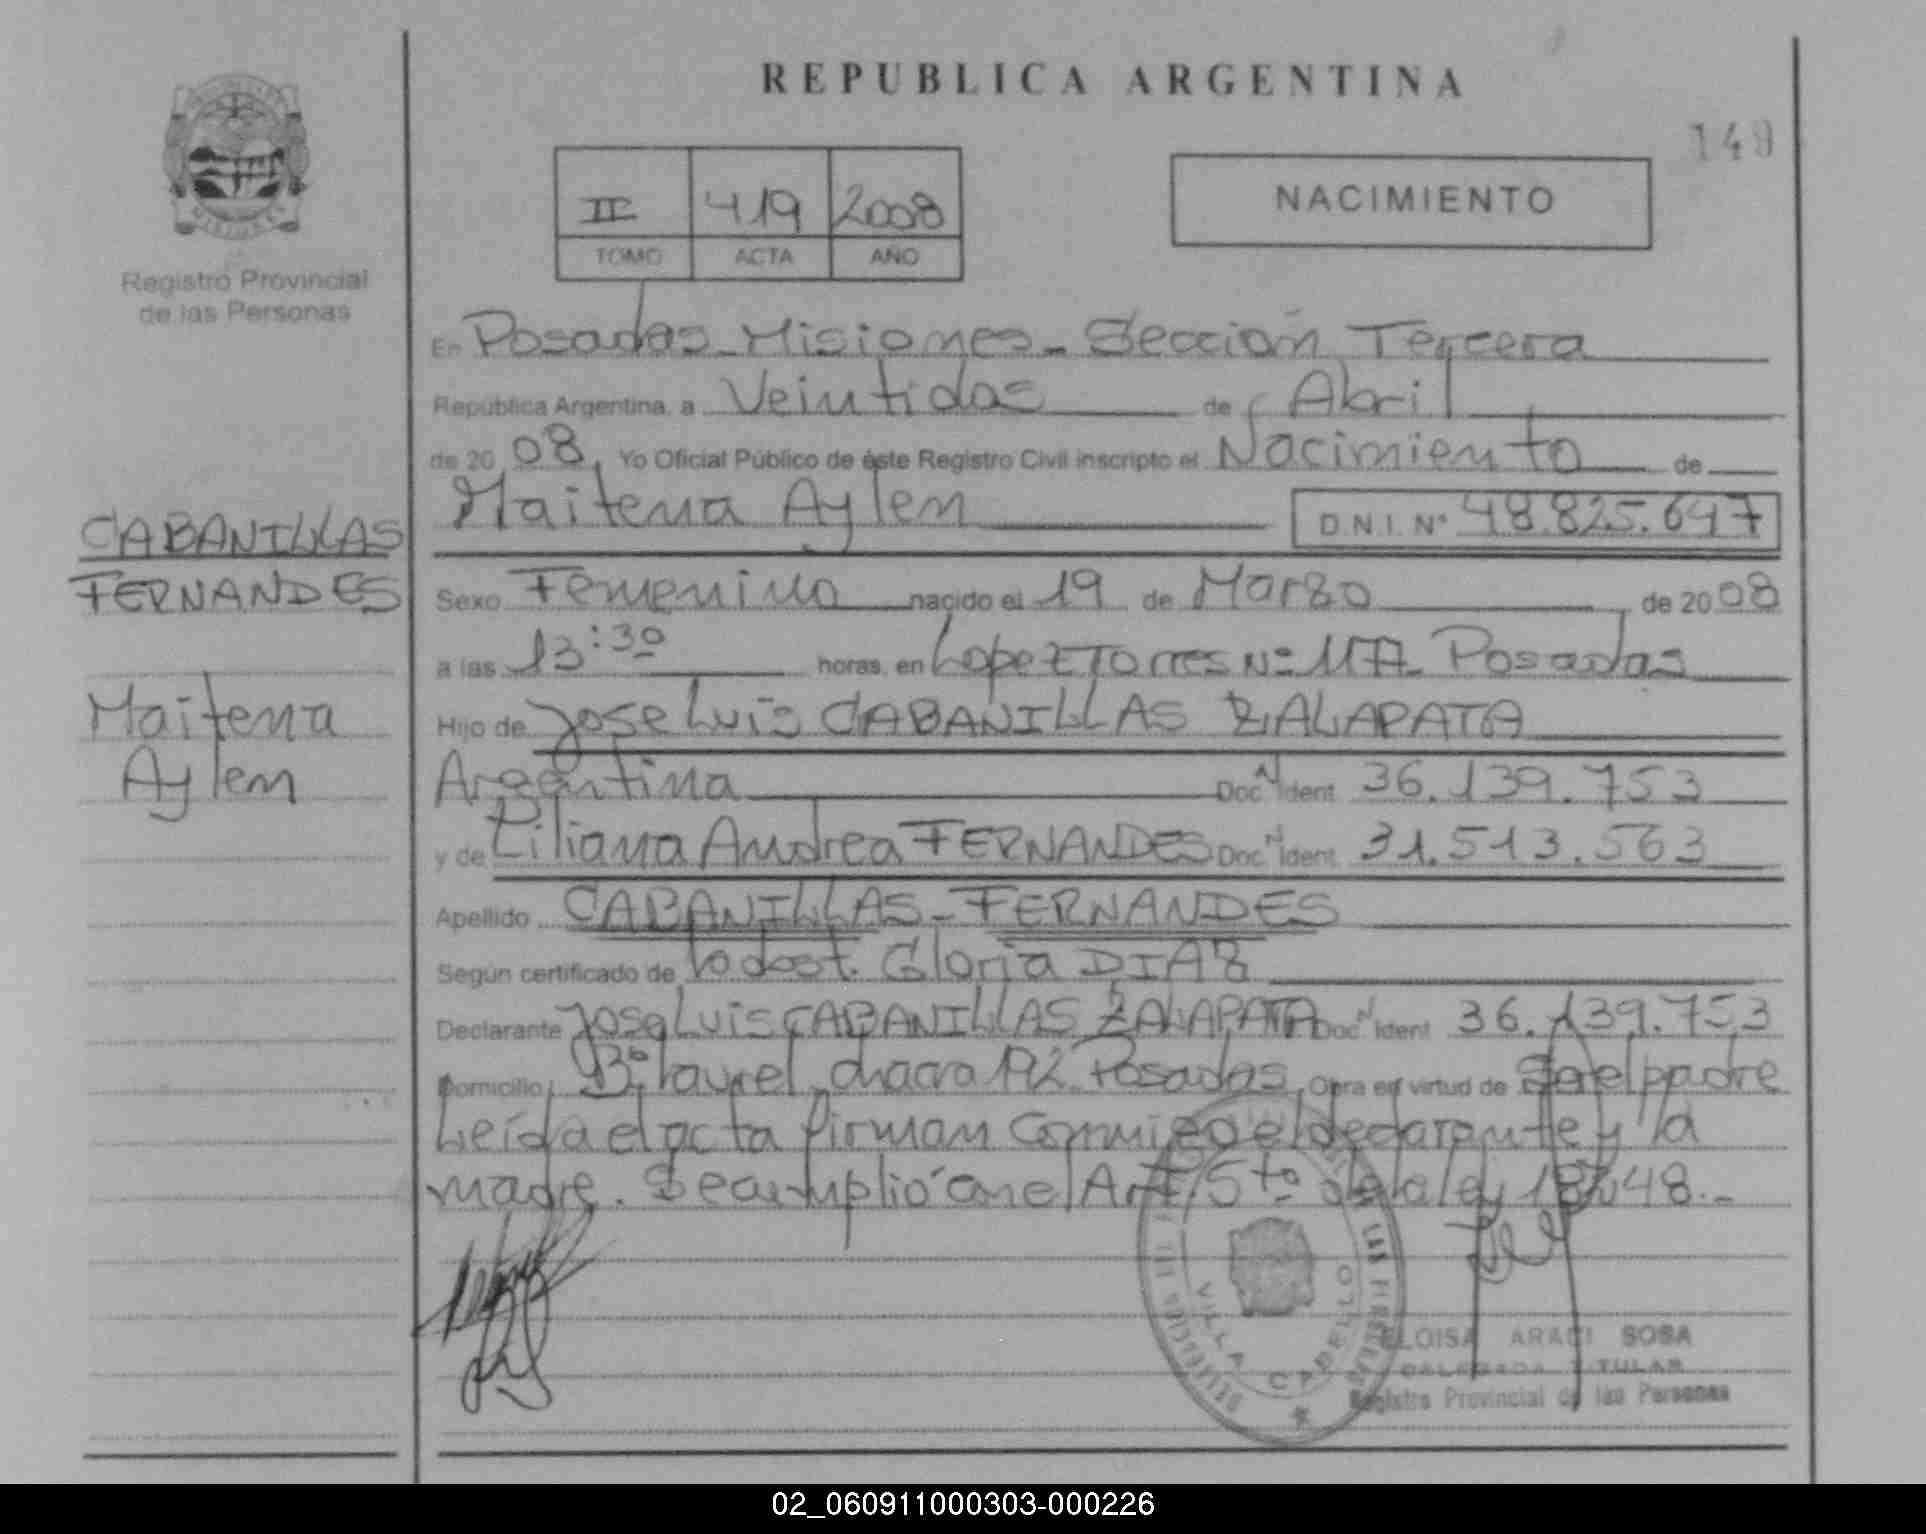 REPUBLICA ARGENTINA
149
II 419 2008
TOMO ACTA AÑO
NACIMIENTO
Registro Provincial
de las Personas
En Posadas - Misiones - Sección Tercera
República Argentina, a Veintidos de Abril
de 2008, Yo Oficial Público de éste Registro Civil inscripto el Nacimiento de
Maitena Aylen D.N.I. Nº 48.825.647
CABANILLAS
FERNANDES
Maitena
Aylen
Sexo Femenino nacido el 19 de Marzo de 2008
a las 13:30 horas, en Lopez Torres Nº 1177 - Posadas
Hijo de Jose Luis CABANILLAS ZALAPATA
Argentina Doc. Ident. 36.139.753
y de Liliana Andrea FERNANDES Doc. Ident. 31.513.563
Apellido CABANILLAS - FERNANDES
Según certificado de Gloria DIAZ
Declarante Jose Luis CABANILLAS ZALAPATA Doc. Ident. 36.139.753
Domicilio Bº laurel chacra 192 Posadas, Obra en virtud de Ser el padre
Leída el acta firman conmigo el declarante y la
madre. Se cumplió con el Art. 5to de la ley 18248.-
VILLA CABELLO
ELOISA ARACI SOSA
DELEGADA TITULAR
Registro Provincial de las Personas
02_060911000303-000226